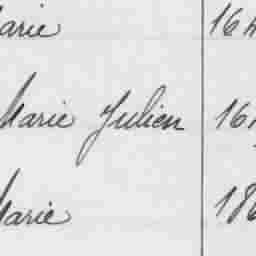 arie 164
Marie Julien 161
Marie 186